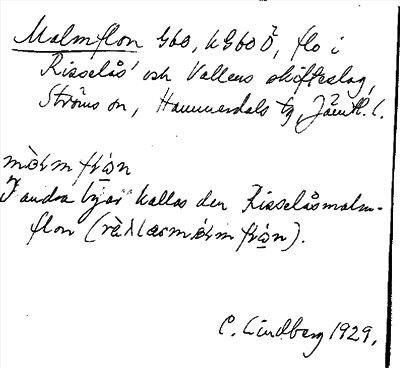 Malmflon 960, k960 Ö, flo i
Risselås' och Vallens skifteslag,
Ströms sn, Hammerdals tg, Jämtl. l.
I andra byar kallas den Risselåsmalm-
flon
C. Lindberg 1929.